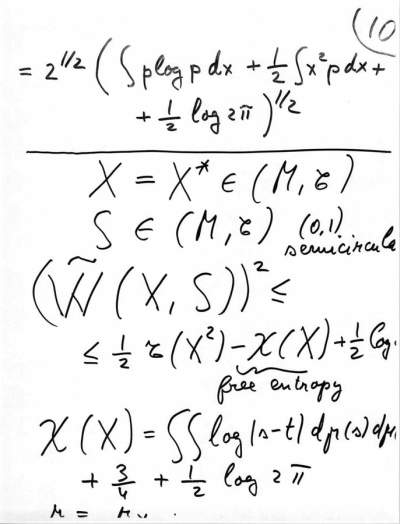 (10
= 2^{1/2} ( ∫ p log p dx + 1/2 ∫ x² p dx +
+ 1/2 log 2π )^{1/2}
X = X* ∈ (M, τ)
S ∈ (M, τ) (0,1)
semicircula
(W̃ (X, S))² ≤
≤ 1/2 τ(X²) − χ(X) + 1/2 log
free entropy
χ(X) = ∫∫ log |s−t| dμ(s) dμ
+ 3/4 + 1/2 log 2π
μ = μ